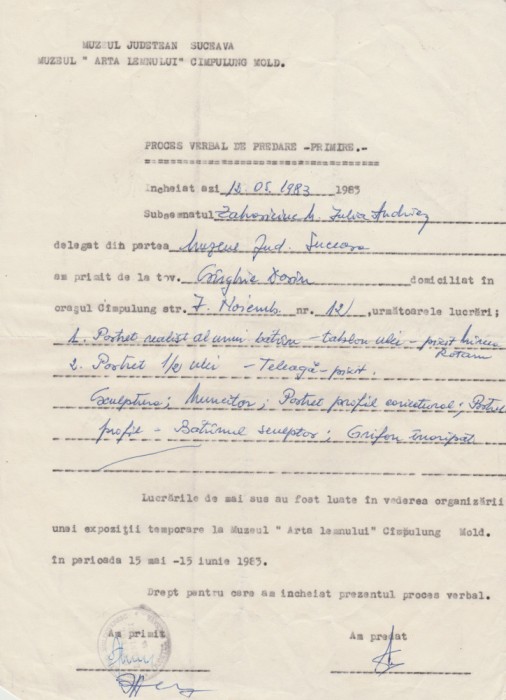 MUZEUL JUDETEAN SUCEAVA
MUZEUL " ARTA LEMNULUI" CIMPULUNG MOLD.
PROCES VERBAL DE PREDARE -PRIMIRE.-
Incheiat azi 12.05.1983 1983
Subsemnatul Iulia Andriej
delegat din partea Muzeul Jud. Suceava
am primit de la tov. Dorin domiciliat în
oraşul Cîmpulung str. 7 Noiemb. nr. 12 ,următoarele lucrări;
1. Portret realist al unui bătrîn - tablou ulei - pictat Mircea
Rotaru
2. Portret 1/2 ulei - Teleagă - pict.
Sculptura; Muncitor; Portret profil caricatural; Portret
profil - Batrînul sculptor; Grifon înaripat
Lucrările de mai sus au fost luate în vederea organizării
unei expoziţii temporare la Muzeul " Arta lemnului" Cîmpulung Mold.
în perioada 15 mai -15 iunie 1983.
Drept pentru care am incheiat prezentul proces verbal.
Am primit Am predat